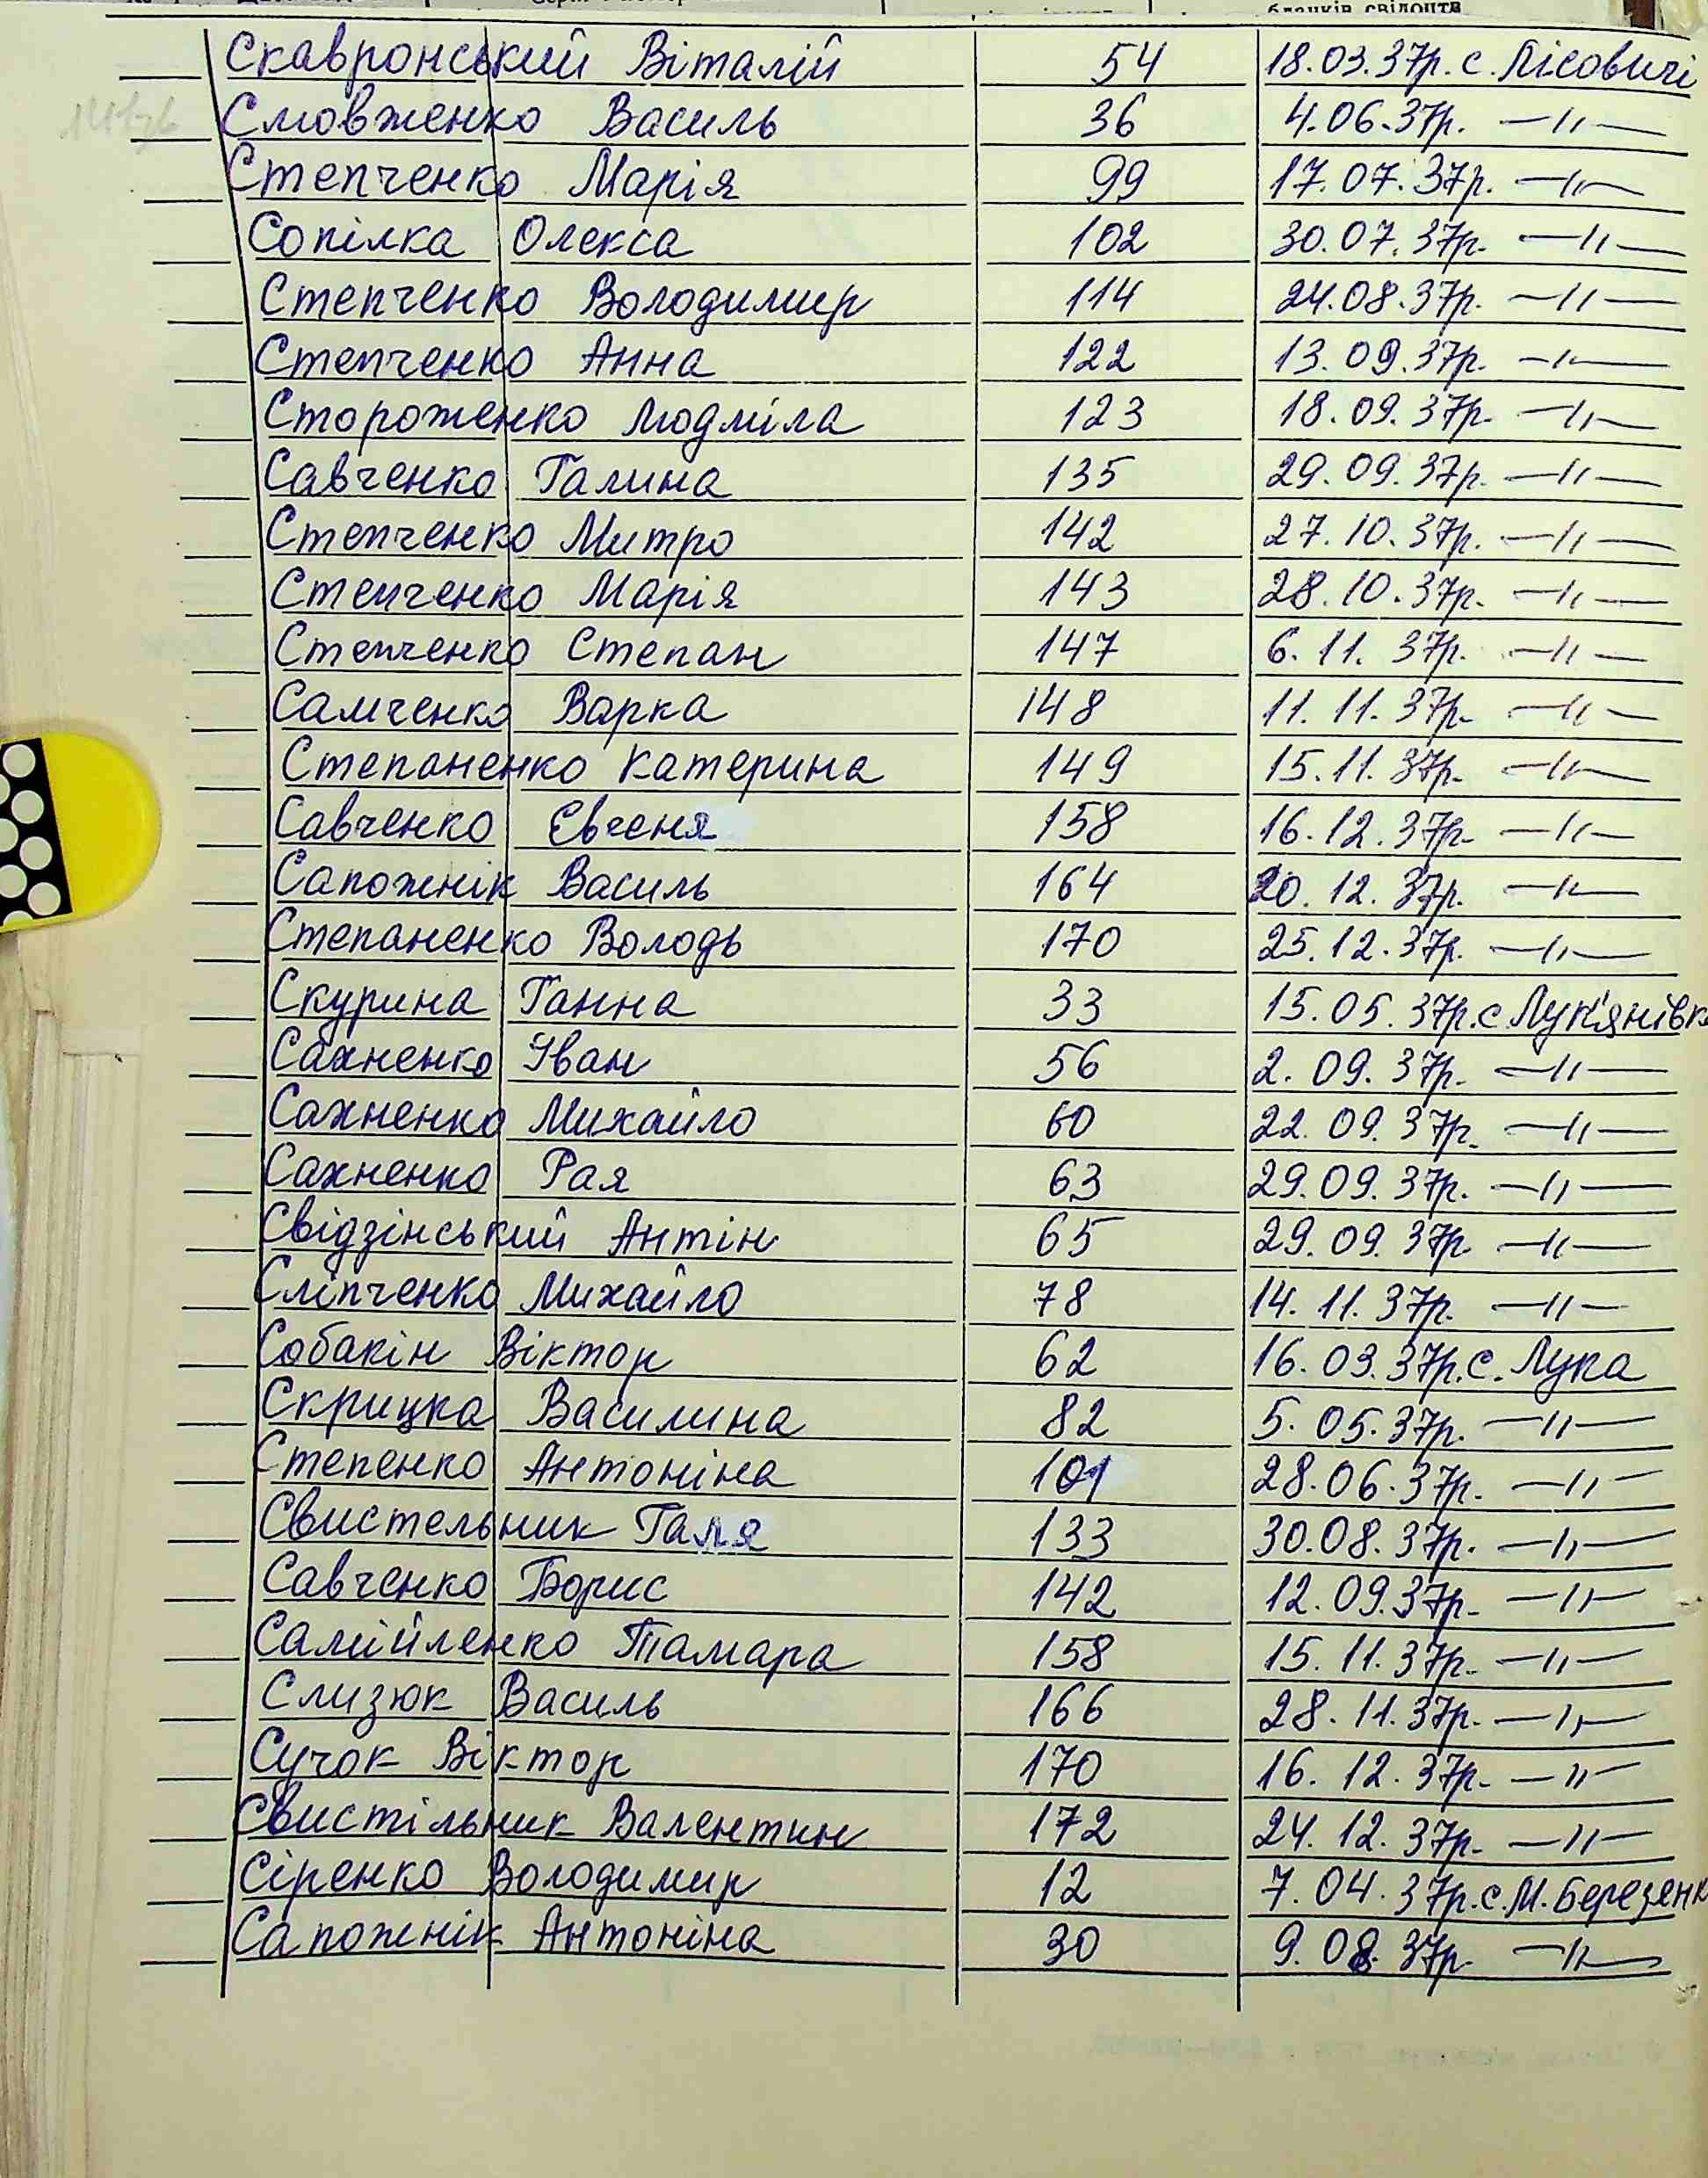 бланків свідоцтв
Скавронський Віталій 54 18.03.37р. с. Лісовичі
Смовженко Василь 36 4.06.37р. —〃—
Степченко Марія 99 17.07.37р. —〃—
Сопілка Олекса 102 30.07.37р. —〃—
Степченко Володимир 114 24.08.37р. —〃—
Степченко Анна 122 13.09.37р. —〃—
Стороженко Людміла 123 18.09.37р. —〃—
Савченко Галина 135 29.09.37р. —〃—
Степченко Митро 142 27.10.37р. —〃—
Степченко Марія 143 28.10.37р. —〃—
Степченко Степан 147 6.11.37р. —〃—
Самченко Варка 148 11.11.37р. —〃—
Степаненко Катерина 149 15.11.37р. —〃—
Савченко Євгеня 158 16.12.37р. —〃—
Сапожнік Василь 164 20.12.37р. —〃—
Степаненко Володь 170 25.12.37р. —〃—
Скурина Ганна 33 15.05.37р. с Лук'янівк
Сахненко Іван 56 2.09.37р. —〃—
Сахненко Михайло 60 22.09.37р. —〃—
Сахненко Рая 63 29.09.37р. —〃—
Свідзінський Антін 65 29.09.37р. —〃—
Сліпченко Михайло 78 14.11.37р. —〃—
Собакін Віктор 62 16.03.37р. с. Лука
Скрицка Василина 82 5.05.37р. —〃—
Степенко Антоніна 101 28.06.37р. —〃—
Свистельник Галя 133 30.08.37р. —〃—
Савченко Борис 142 12.09.37р. —〃—
Самійленко Тамара 158 15.11.37р. —〃—
Слизюк Василь 166 28.11.37р. —〃—
Сучок Віктор 170 16.12.37р. —〃—
Свистільник Валентин 172 24.12.37р. —〃—
Сіренко Володимир 12 7.04.37р. с. М. Березенк
Сапожнік Антоніна 30 9.08.37р. —〃—